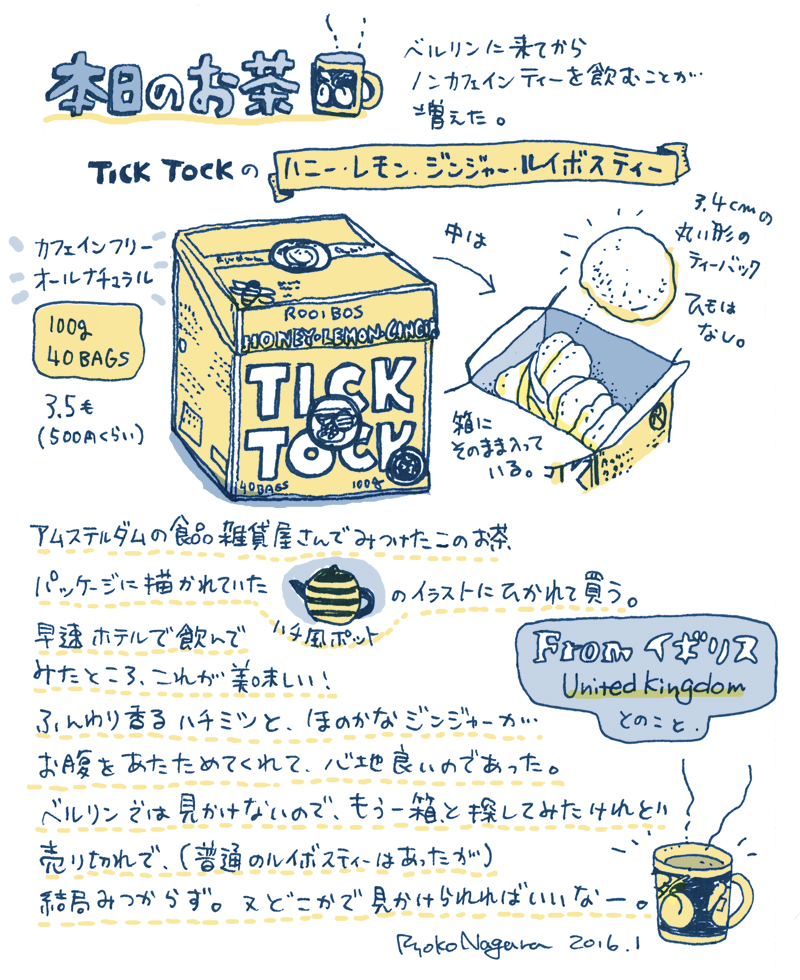 本日のお茶
ベルリンに来てから
ノンカフェインティーを飲むことが
増えた。
TICK TOCKの ハニー・レモン・ジンジャー・ルイボスティー
カフェインフリー
オールナチュラル
100g
40BAGS
3.5€
(500円くらい)
ROOIBOS
HONEY・LEMON・GINGER
TICK
TOCK
40BAGS 100g
中は
3,4cmの
丸い形の
ティーバック
ひもは
なし。
箱に
そのまま入って
いる。
アムステルダムの食品雑貨屋さんでみつけたこのお茶、
パッケージに描かれていた のイラストにひかれて買う。
ハチ風ポット
早速ホテルで飲んで
みたところ、これが美味しい!
ふんわり香るハチミツと、ほのかなジンジャーが…
お腹をあたためてくれて、心地良いのであった。
ベルリンでは見かけないので、もう一箱、と探してみたけれど…
売り切れで、(普通のルイボスティーはあったが)
結局みつからず。又どこかで見かけられればいいなー。
From イギリス
United Kingdom
とのこと.
Ryoko Nagara 2016.1